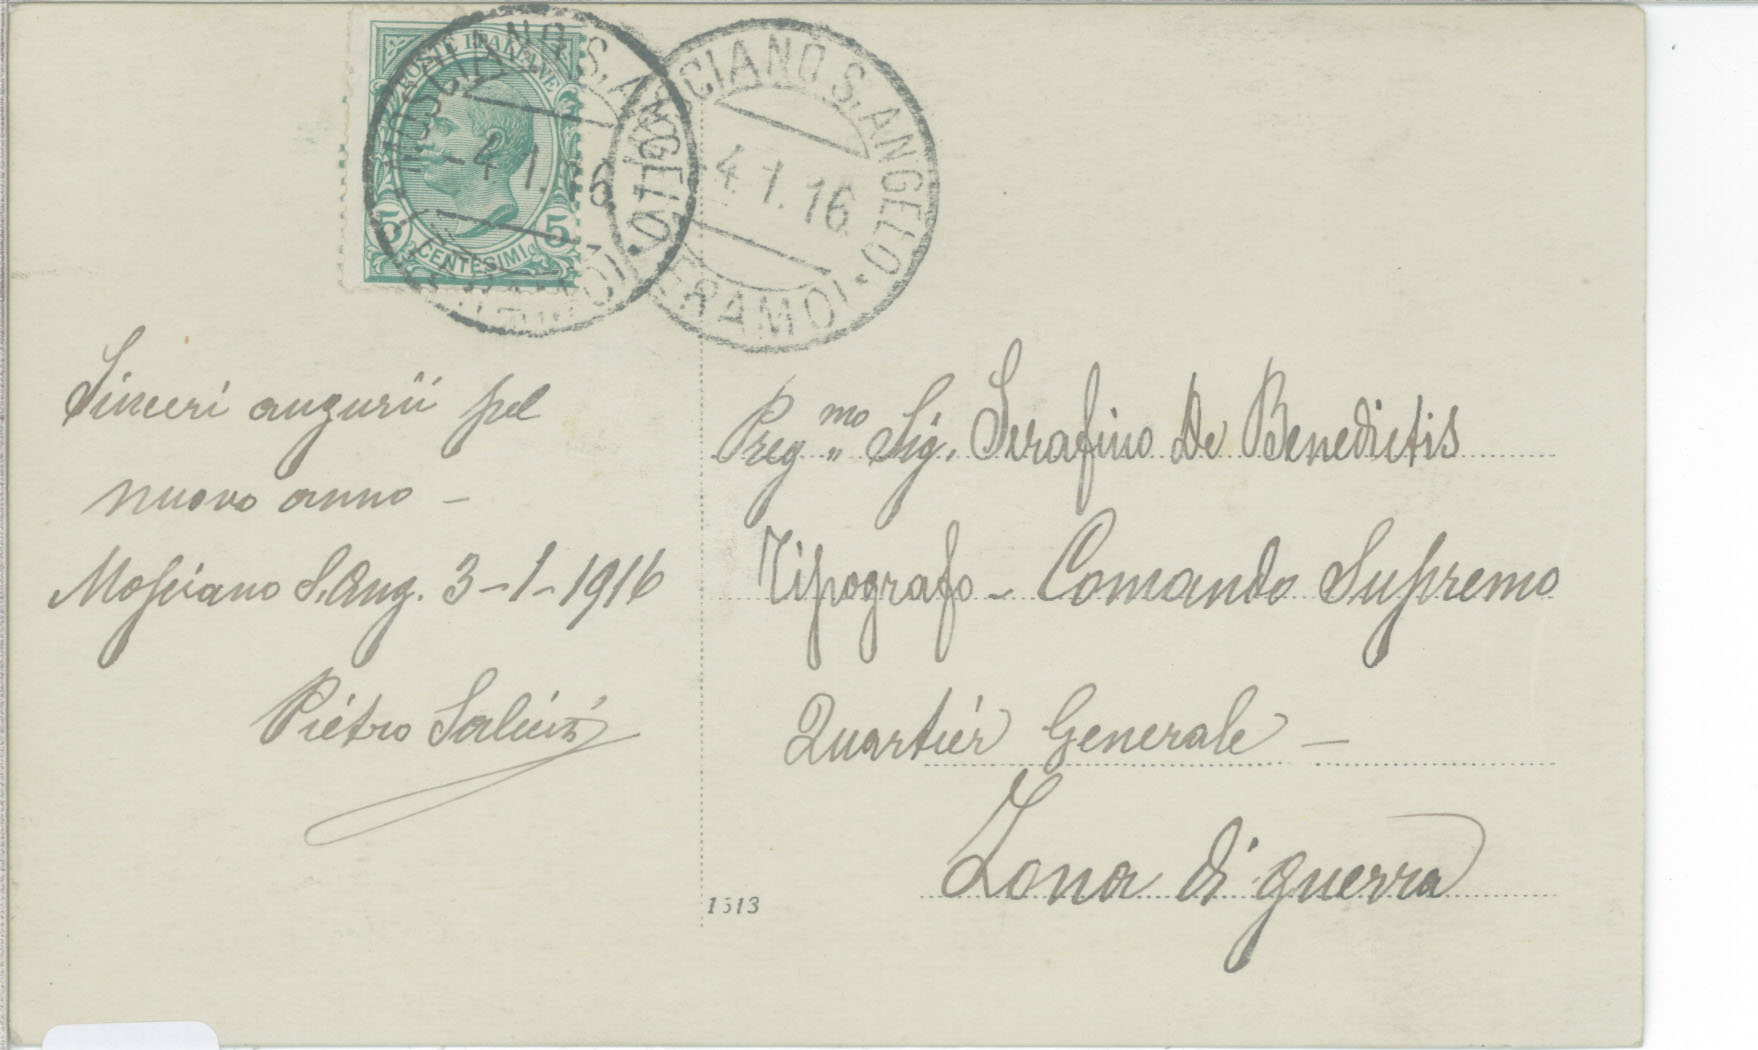 POSTE ITALIANE
5 5
CENTESIMI
MOSCIANO S. ANGELO
-4.1.16
MOSCIANO S. ANGELO
4.1.16
(TERAMO)
Sinceri augurii pel
nuovo anno –
Mosciano S. Ang. 3-1-1916
Pietro
Preg.mo Sig. Serafino De Benedictis
Tipografo – Comando Supremo
Quartier Generale –
Zona di guerra
1513